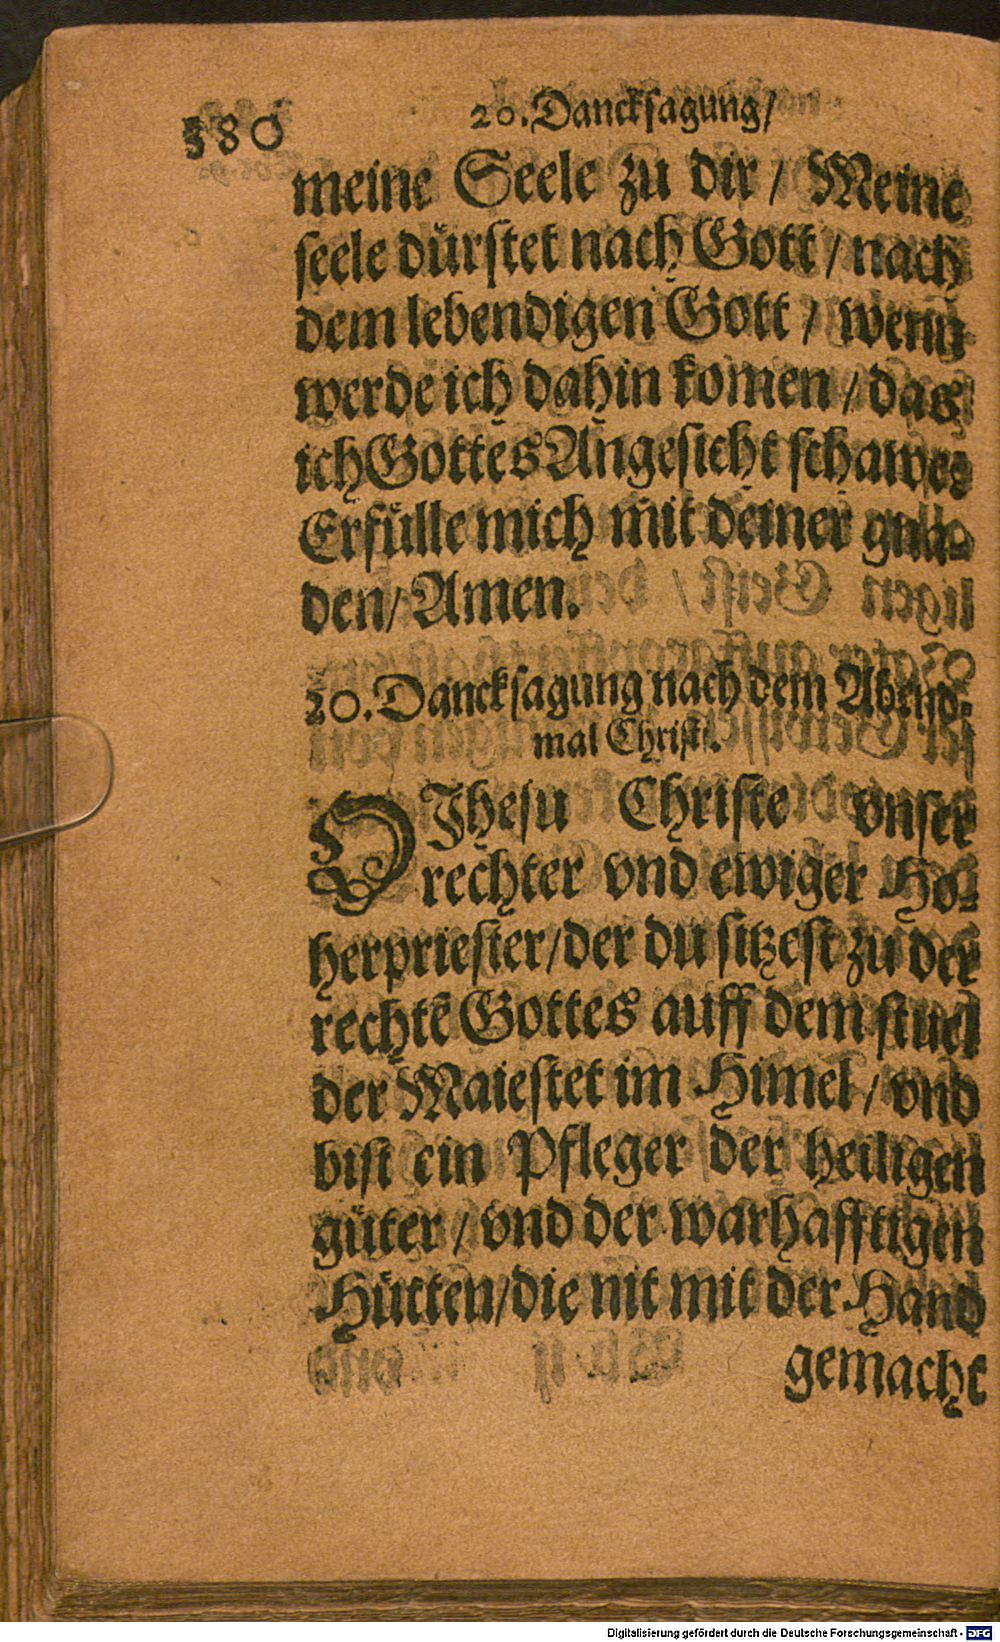 380
20. Dancksagung/
meine Seele zu dir / Meine
seele dürstet nach Gott / nach
dem lebendigen Gott / wenn
werde ich dahin komen / das
ich Gottes Angesicht schawe:
Erfülle mich mit deiner gna-
den/ Amen.
20. Dancksagung nach dem Abend-
mal Christi.
O Jhesu Christe vnser
rechter vnd ewiger Ho-
herpriester/der du sitzest zu der
rechtē Gottes auff dem stuel
der Maiestet im Himel / vnd
bist ein Pfleger der heiligen
güter / vnd der warhafftigen
Hütten/die nit mit der Hand
gemacht
Digitalisierung gefördert durch die Deutsche Forschungsgemeinschaft - DFG